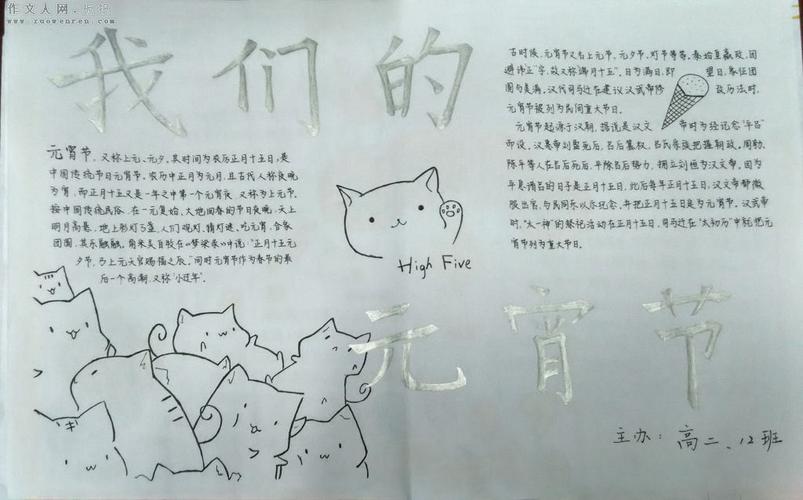 作文人网
www.zuowenren.com
我们的
元宵节，又称上元、元夕。其时间为农历正月十五日，是
中国传统节日元宵节。农历中正月为元月，且古代人称良晚
为宵，而正月十五又是一年之中第一个元宵夜，又称为上元节。
按中国传统民俗，在一元复始，大地回春的节日良晚，天上
明月高悬，地上彩灯万盏，人们观灯、猜灯谜、吃元宵、合家
团圆，其乐融融。南宋吴自牧在《梦粱录》中说："正月十五元
夕节，乃上元天官赐福之辰。"同时元宵节作为春节的最
后一个高潮，又称"小过年"。
古时候，元宵节又名上元节、元夕节、灯节等等。秦始皇嬴政，因
避讳"正"字，故又称"端月十五"。日为满日，即望日，象征团
圆和美满。汉代司马迁在建议汉武帝修改历法时，
元宵节被列为民间重大节日。
元宵节起源于汉朝，据说是汉文帝时为纪念"平吕"
而设。汉惠帝刘盈死后，吕后篡权，吕氏宗族把握朝政。周勃、
陈平等人在吕后死后，平除吕后势力，拥立刘恒为汉文帝。因为
平息诸吕的日子是正月十五日，此后每年正月十五日，汉文帝都微
服出宫，与民同乐以示纪念，并把正月十五日定为元宵节。汉武帝
时，"太一神"的祭祀活动在正月十五日，司马迁在"太初历"中就把元
宵节列为重大节日。
High Five
元宵节
主办：高二、12班